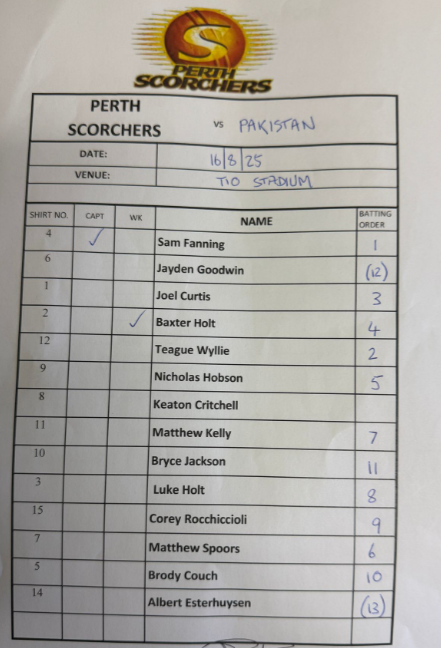 S
PERTH
SCORCHERS
PERTH
SCORCHERS vs PAKISTAN
DATE: 16/8/25
VENUE: TIO STADIUM
SHIRT NO. CAPT WK NAME BATTING ORDER
4 ✓ Sam Fanning 1
6 Jayden Goodwin (12)
1 Joel Curtis 3
2 ✓ Baxter Holt 4
12 Teague Wyllie 2
9 Nicholas Hobson 5
8 Keaton Critchell
11 Matthew Kelly 7
10 Bryce Jackson 11
3 Luke Holt 8
15 Corey Rocchiccioli 9
7 Matthew Spoors 6
5 Brody Couch 10
14 Albert Esterhuysen (13)